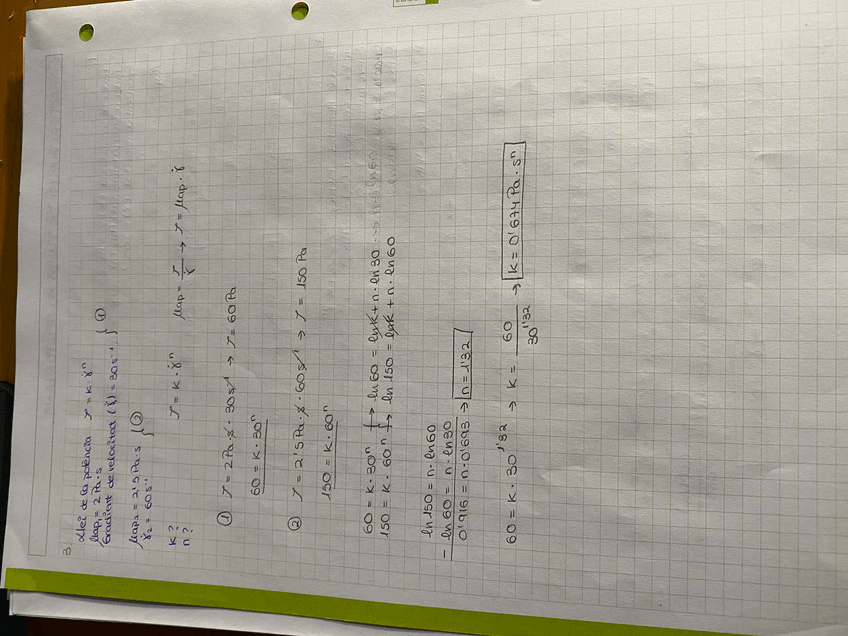 3.
Llei de la potència τ = k · γ̇ⁿ
μap₁ = 2 Pa·s
Gradient de velocitat (γ̇) = 30 s⁻¹ } ①
μap₂ = 2'5 Pa·s
γ̇₂ = 60 s⁻¹ } ②
k?
n?
τ = k · γ̇ⁿ μap = τ/γ̇ → τ = μap · γ̇
① τ = 2 Pa·s · 30 s⁻¹ → τ = 60 Pa
60 = k · 30ⁿ
② τ = 2'5 Pa·s · 60 s⁻¹ → τ = 150 Pa
150 = k · 60ⁿ
60 = k · 30ⁿ → ln 60 = ln k + n · ln 30
150 = k · 60ⁿ → ln 150 = ln k + n · ln 60
ln 150 = n · ln 60
- ln 60 = n · ln 30
0'916 = n · 0'693 → n = 1'32
60 = k · 30^1'32 → k = 60/30^1'32 → k = 0'674 Pa · sⁿ